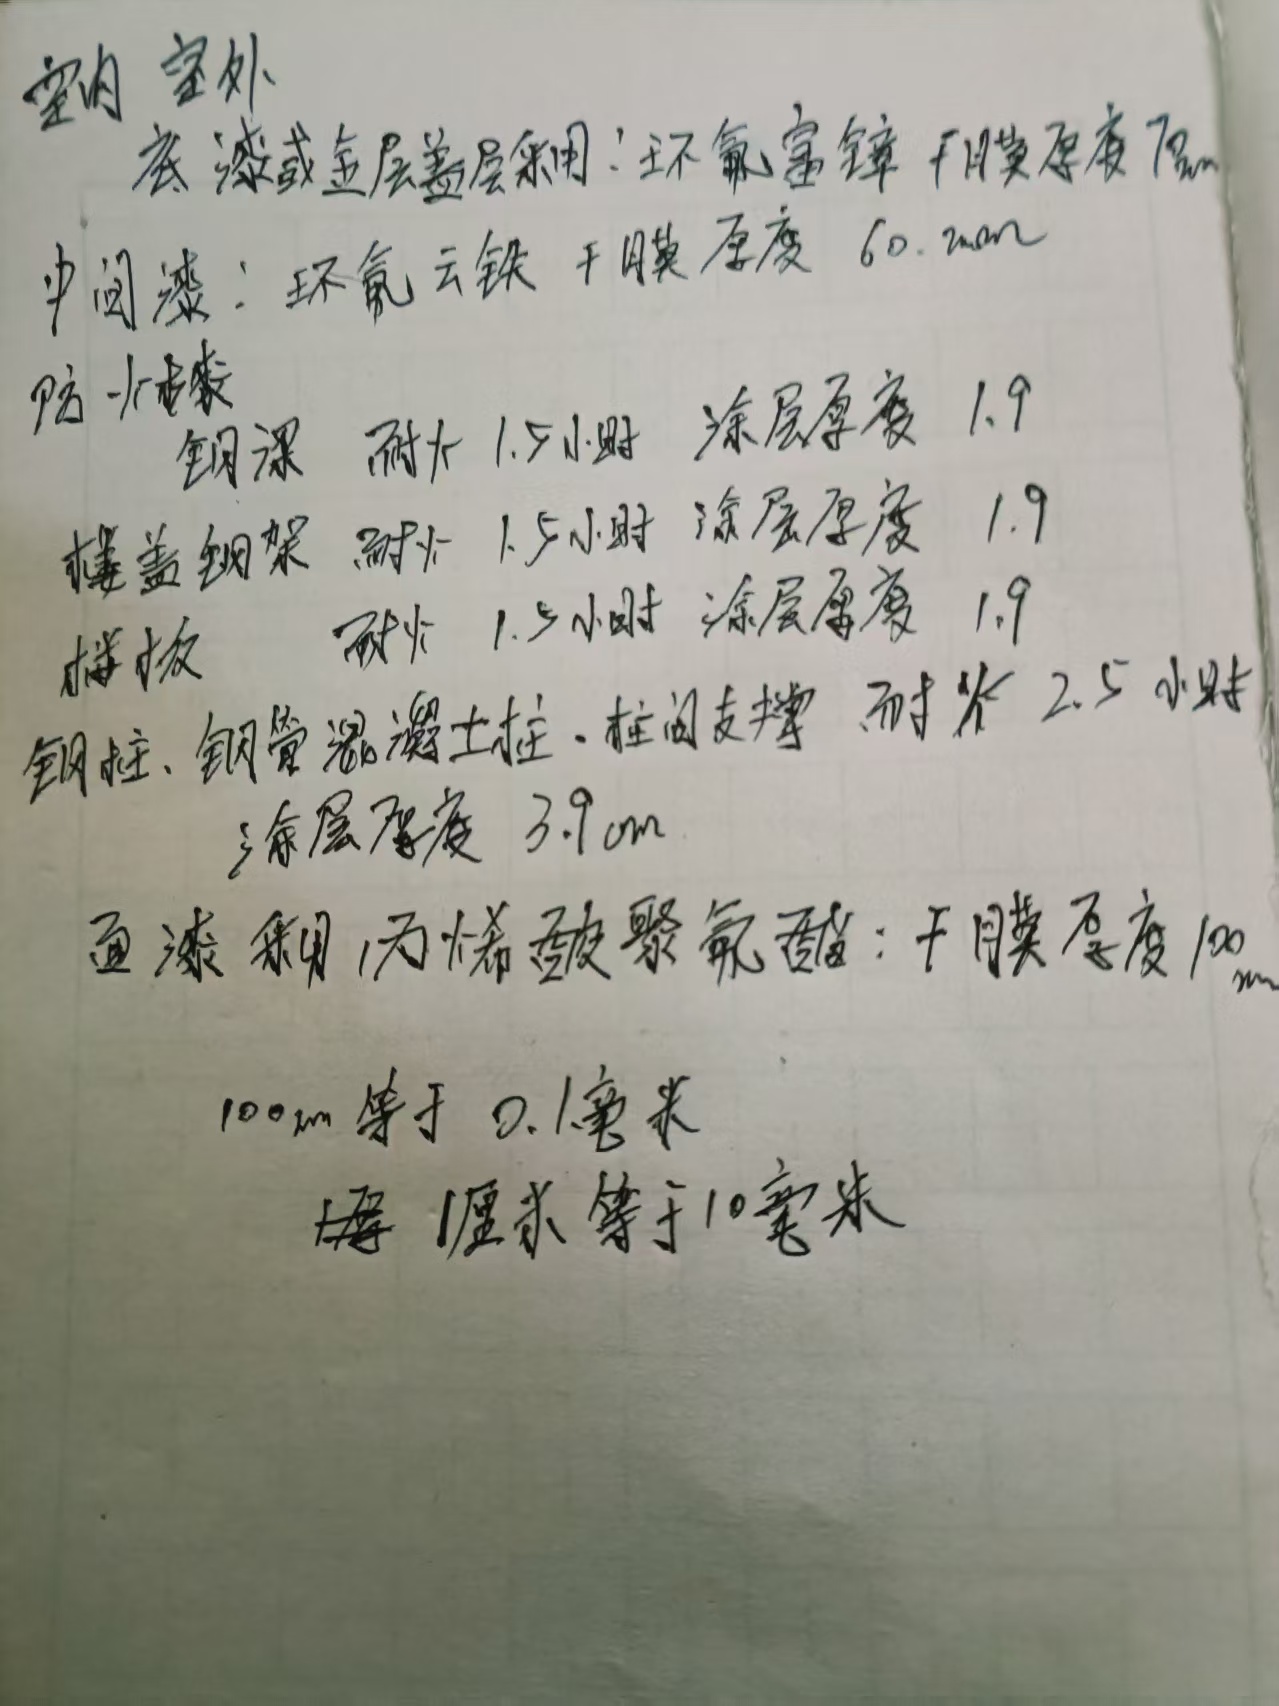 室内 室外
底漆或金层盖层采用：环氧富锌 干膜厚度
中间漆：环氧云铁 干膜厚度 60.mm
防火漆
钢梁 耐火 1.5小时 涂层厚度 1.9
楼盖钢架 耐火 1.5小时 涂层厚度 1.9
楼板 耐火 1.5小时 涂层厚度 1.9
钢柱、钢管混凝土柱、柱间支撑 耐火 2.5小时
涂层厚度 3.9cm
面漆采用 丙烯酸聚氨酯：干膜厚度100
100um 等于 0.1毫米
1厘米等于10毫米